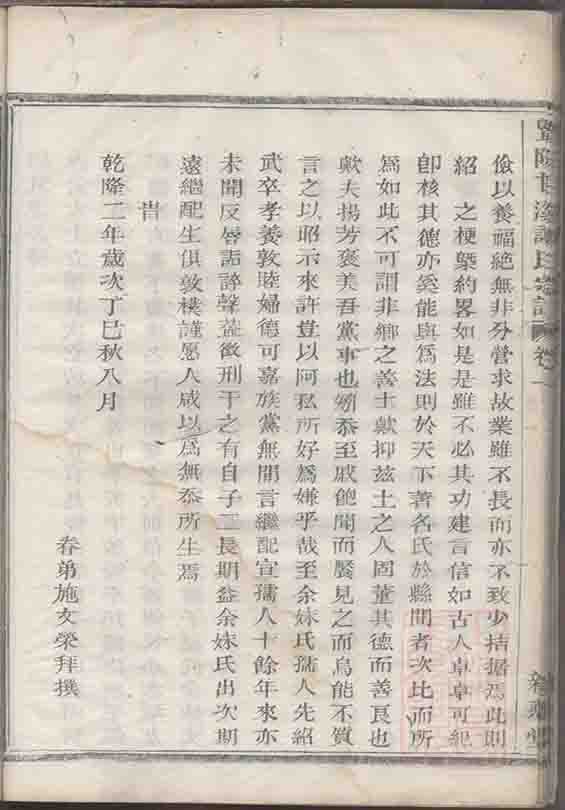 儉以養福絶無非分營求故業雖不長而亦不致少拮据焉此則
紹 之梗槩約畧如是是雖不必其功建言信如古人卓卓可紀
卽核其德亦奚能與爲法則於天下著名氏於縣間者次比而所
爲如此不可謂非鄉之善士歟抑茲土之人固董其德而善良也
歟夫揚芳褒美吾黨事也矧忝至戚飽聞而饜見之而烏能不質
言之以昭示來許豈以阿私所好爲嫌乎哉至余妹氏孺人先紹
武卒孝養敦睦婦德可嘉族黨無間言繼配宣孺人十餘年來亦
未聞反唇詬誶聲益徵刑于之有自子二長期益余妹氏出次期
遠繼配生俱敦樸謹愿人咸以爲無忝所生焉
旹
乾隆二年歲次丁巳秋八月
眷弟施文榮拜撰
暨陽 氏宗譜 卷一